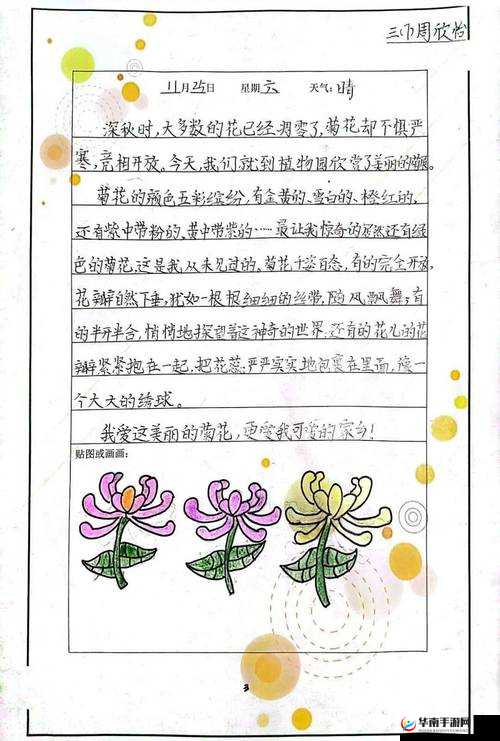 三(1)周欣怡
11月25日 星期六 天气:晴
深秋时,大多数的花已经凋零了,菊花却不惧严
寒,竞相开放。今天,我们就到植物园欣赏了美丽的菊展。
菊花的颜色五彩缤纷,有金黄的、雪白的、橙红的,
还有紫中带粉的、黄中带紫的……最让我惊奇的居然还有绿
色的菊花,这是我从未见过的。菊花千姿百态,有的完全开放,
花瓣自然下垂,犹如一根根细细的丝带,随风飘舞;有
的半开半合,悄悄地探望着这神奇的世界;还有的花儿的花
瓣紧紧抱在一起,把花蕊严严实实地包裹在里面,像一
个大大的绣球。
我爱这美丽的菊花,更爱我可爱的家乡!
贴图或画画:
3
华南手游网